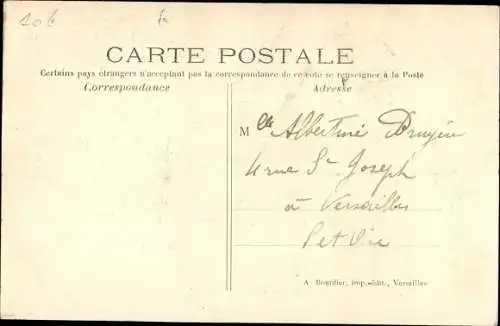 20c
CARTE POSTALE
Certains pays étrangers n'acceptant pas la correspondance de ce côté se renseigner à la Poste
Correspondance
Adresse
Mlle Albertine
4 rue St Joseph
à Versailles
Set Oise
A. Bourdier, imp.-édit., Versailles